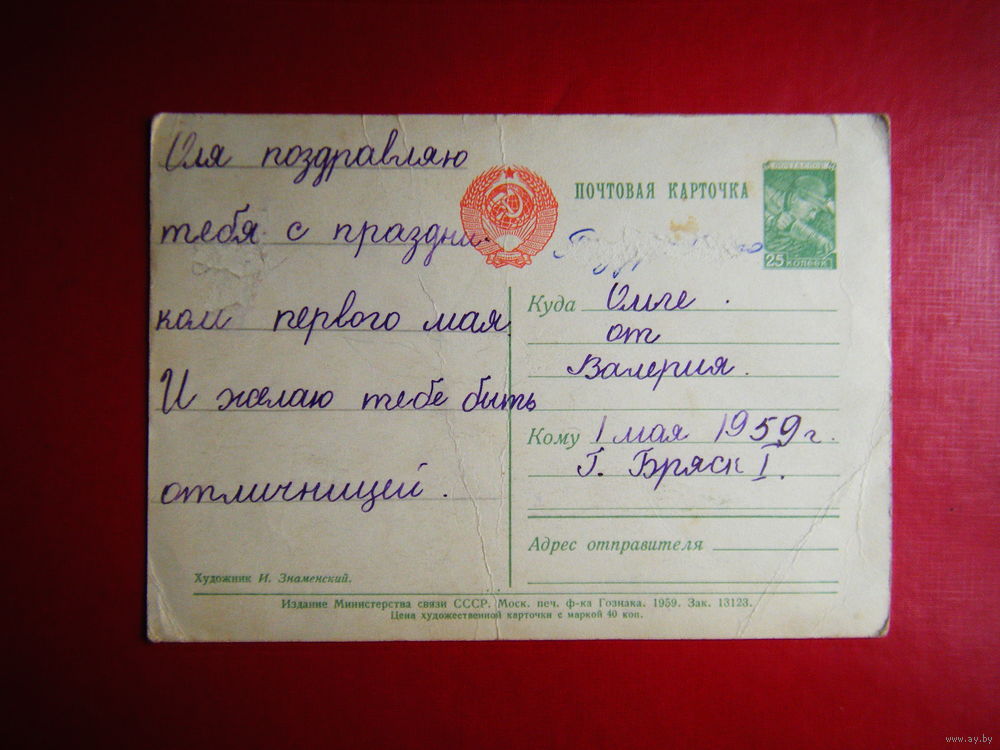 Оля поздравляю
тебя с праздни-
ком первого мая.
И желаю тебе быть
отличницей.
Художник И. Знаменский.
ПОЧТОВАЯ КАРТОЧКА
ПОЧТА СССР
25 КОПЕЕК
Куда Олге.
от
Валерия.
Кому 1 мая 1959 г.
Г. Бряск I.
Адрес отправителя
Издание Министерства связи СССР. Моск. печ. ф-ка Гознака. 1959. Зак. 13123.
Цена художественной карточки с маркой 40 коп.
www.ay.by